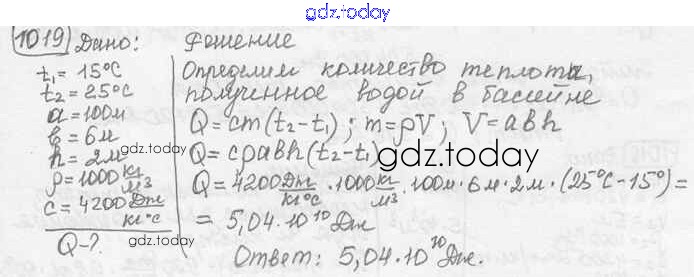 gdz.today
1019 Дано: Решение
t₁ = 15°C
t₂ = 25°C
a = 100м
b = 6м
h = 2м
ρ = 1000 кг/м3
c = 4200 Дж/кг°C
Q - ?
Определим количество теплоты,
полученное водой в бассейне
Q = cm(t₂ - t₁); m = ρV; V = abh
Q = cρabh(t₂ - t₁)
gdz.today
Q = 4200 Дж/кг°C · 1000 кг/м3 · 100м · 6м · 2м · (25°C - 15°) =
= 5,04 · 10¹⁰ Дж
Ответ: 5,04 · 10¹⁰ Дж.
gdz.today